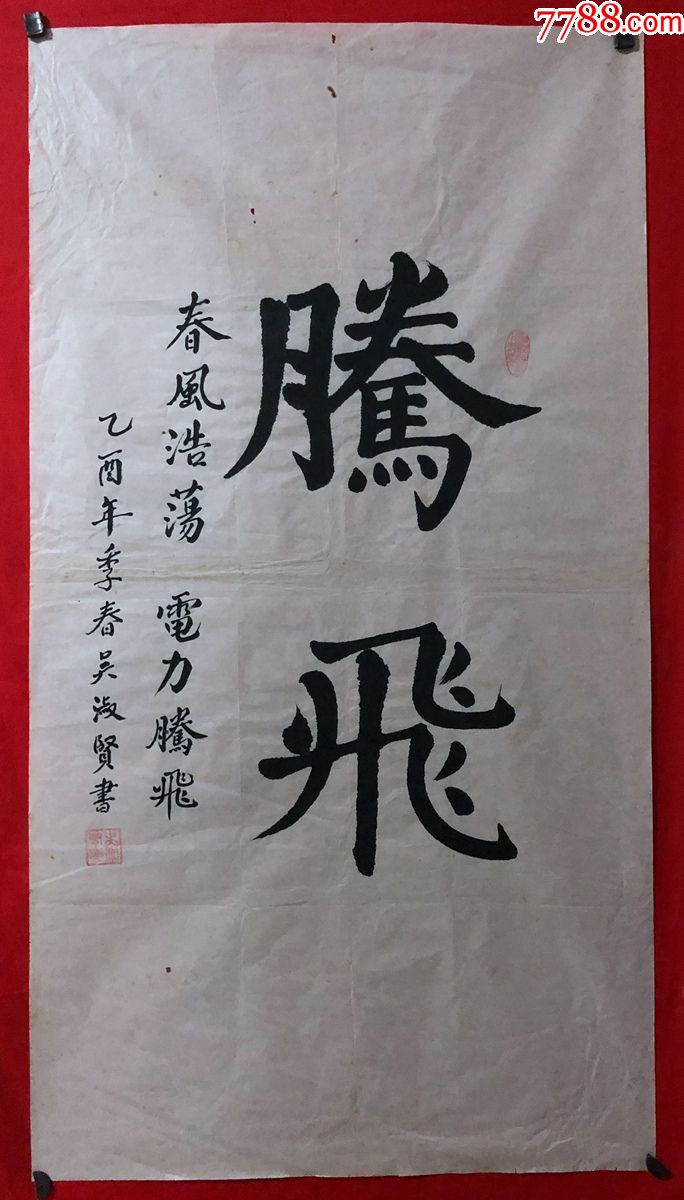 7788.com
騰飛
春風浩蕩 電力騰飛
乙酉年季春吴淑賢書